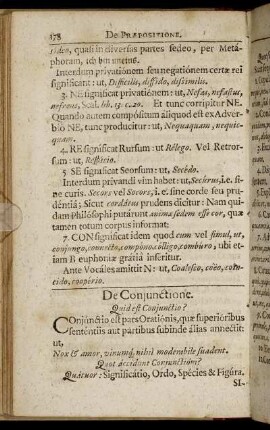 178 DE PRÆPOSITIONE.
sideo, quasi in diversas partes sedeo, per Metá-
phoram, ich bin uneins.
Interdum privatiónem seu negatiónem certæ rei
significant: ut, Difficilis, diffido, dissimilis.
3. NE significat privatiónem: ut, Nefas, nefastus,
nefrens, Scal. lib. 13. c. 20. Et tunc corripitur NE.
Quando autem compósitum áliquod est ex Adver-
bio NE, tunc producitur: ut, Nequaquam, nequic-
quam.
4. RE significat Rursum: ut Rélego. Vel Retror-
sum: ut, Respício.
5. SE significat Seorsum: ut, Secédo.
Interdum privandi vim habet: ut, Secúrus, i.e. si-
ne curis. Socors vel Secors, i.e. sine corde seu pru-
déntiâ; Sicut cordátus prudens dícitur: Nam qui-
dam Philósophi putárunt ánimæ sedem esse cor, quæ
tamen totum corpus informat.
7. CON significat idem quod cum vel simul, ut,
conjungo, connecto, compóno, cólligo, combúro, ubi et-
iam B euphoniæ grátiâ inséritur.
Ante Vocáles amittit N: ut, Coalesco, cöëo, coin-
cido, coopério.
De Conjunctione.
Quid est Conjunctio?
Conjúnctio est pars Oratiónis, quæ superióribus
senténtiis aut pártibus subinde álias annectit:
ut,
Nox & amor, vinumq; nihil moderabile suadent.
Quot accidunt Conjunctióni?
Quátuor: Significátio, Ordo, Spécies & Figúra.
SI-